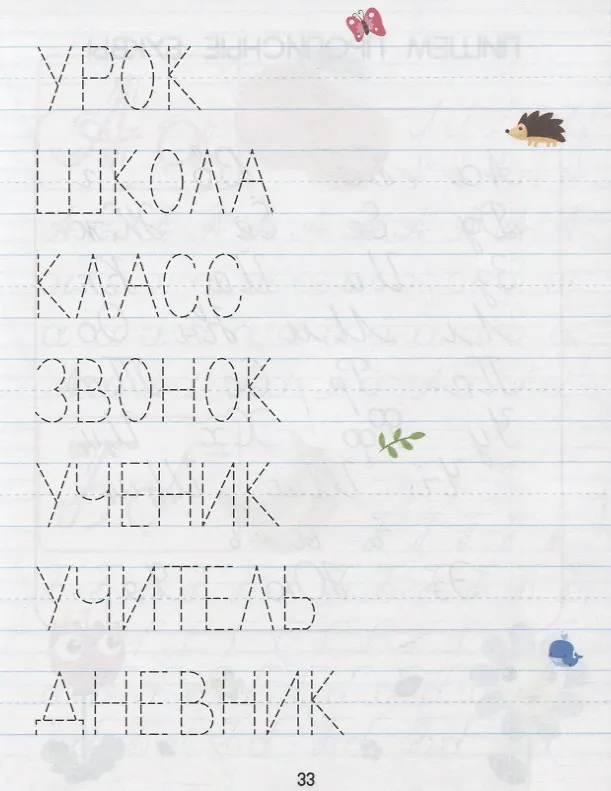 УРОК
ШКОЛА
КЛАСС
ЗВОНОК
УЧЕНИК
УЧИТЕЛЬ
ДНЕВНИК
33